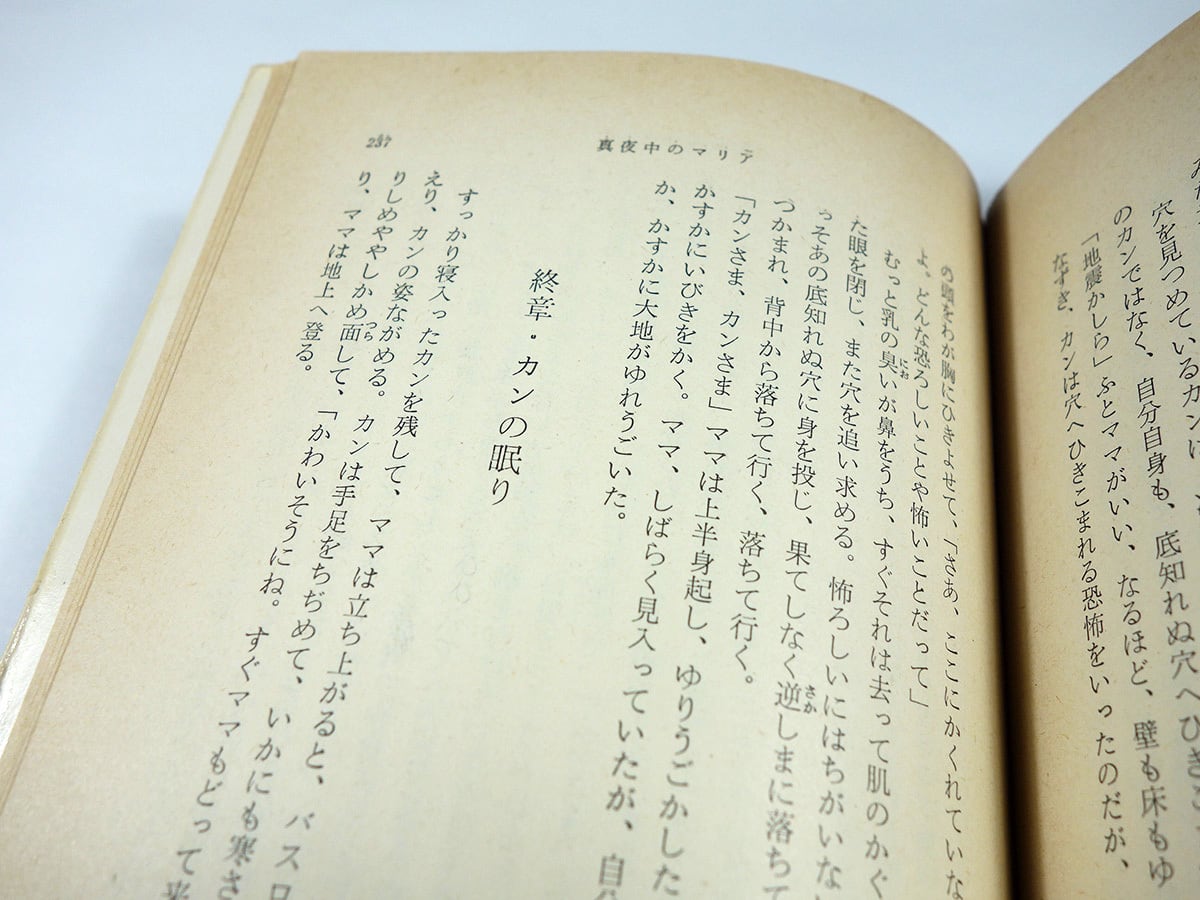 穴を見つめているカンに
のカンではなく、自分自身も、底知れぬ穴へひき
「地震かしら」ふとママがいい、なるほど、壁も床もゆ
なずき、カンは穴へひきこまれる恐怖をいったのだが、
237
真夜中のマリア
の頭をわが胸にひきよせて、「さあ、ここにかくれていな
よ。どんな恐ろしいことや怖いことだって」
むっと乳の臭いが鼻をうち、すぐそれは去って肌のかぐ
た眼を閉じ、また穴を追い求める。怖ろしいにはちがいな
っそあの底知れぬ穴に身を投じ、果てしなく逆しまに落ちて
つかまれ、背中から落ちて行く、落ちて行く。
「カンさま、カンさま」ママは上半身起し、ゆりうごかした
かすかにいびきをかく。ママ、しばらく見入っていたが、自分
か、かすかに大地がゆれうごいた。
終章・カンの眠り
すっかり寝入ったカンを残して、ママは立ち上がると、バスロ
えり、カンの姿ながめる。カンは手足をちぢめて、いかにも寒さ
りしめややしかめ面して、「かわいそうにね。すぐママもどって来
り、ママは地上へ登る。